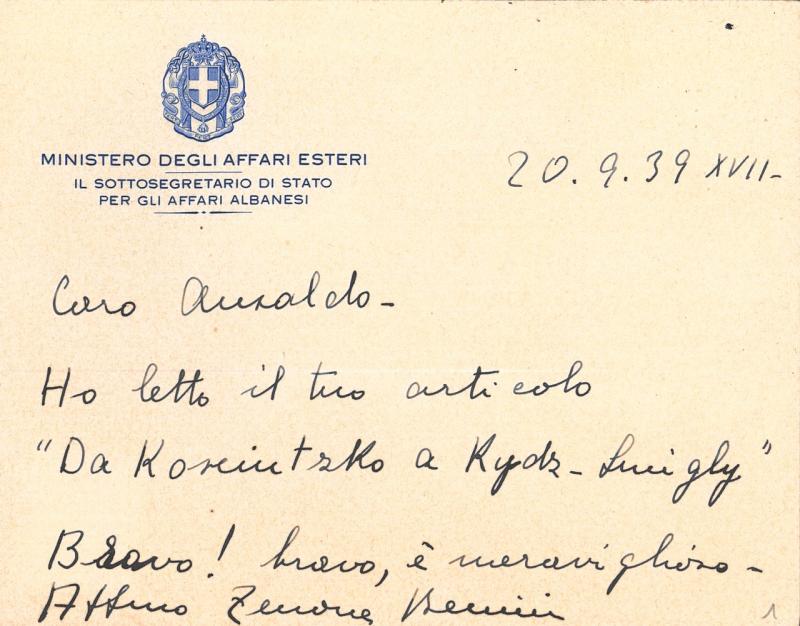 MINISTERO DEGLI AFFARI ESTERI
IL SOTTOSEGRETARIO DI STATO
PER GLI AFFARI ALBANESI
20.9.39 XVII-
Caro Ansaldo-
Ho letto il tuo articolo
"Da Kosciutzko a Rydz-Smigly"
Bravo! bravo, è meraviglioso-
Affmo Zenone Benini
1